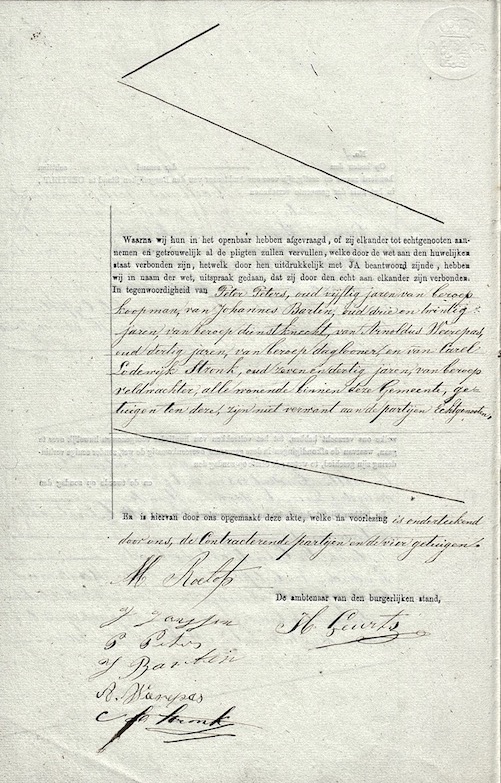 Waarna wij hun in het openbaar hebben afgevraagd, of zij elkander tot echtgenooten aan-
nemen en getrouwelijk al de pligten zullen vervullen, welke door de wet aan den huwelijken
staat verbonden zijn, hetwelk door hen uitdrukkelijk met JA beantwoord zijnde, hebben
wij in naam der wet, uitspraak gedaan, dat zij door den echt aan elkander zijn verbonden.
In tegenwoordigheid van Peter Peters, oud vijftig jaren van beroep
koopman, van Johannes Barten, oud drie en twintig
jaren, van beroep dienstknecht, van Arnoldus Weerepas,
oud dertig jaren, van beroep daglooner, en van Carel
Lodewijk Stronk, oud zeven en dertig jaren, van beroep
veldwachter, alle wonend binnen deze Gemeente, ge-
tuigen ten deze, zijn niet verwant aan de partijen Echtgenooten,
En is hiervan door ons opgemaakt deze akte, welke na voorlezing is onderteekend
door ons, de Contracterende partijen en de vier getuigen.
M Roelofs
De ambtenaar van den burgerlijken stand,
H. Geurts
J Janssen
P Peters
J Barten
A. Warepas
Stronk